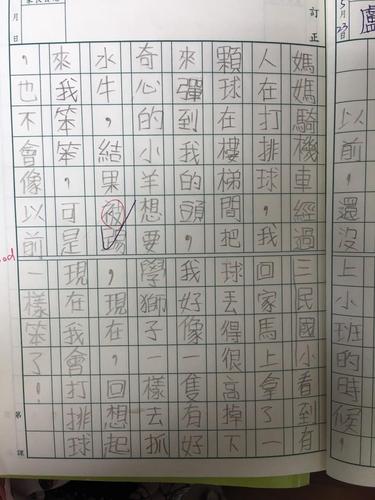 5月23日
盧
以前，還沒上小班的時候，
訂正
媽媽騎機車經過三民國小看到有
人在打排球，我回家馬上拿了一
顆球在樓梯間把球丟得很高掉下
來彈到我的頭，我好像一隻有好
奇心的小羊想要學獅子一樣去抓
水牛，結果被踢，現在，回想起
來我笨笨，可是現在我會打排球
，也不會像以前一樣笨了！
月 日
第 課